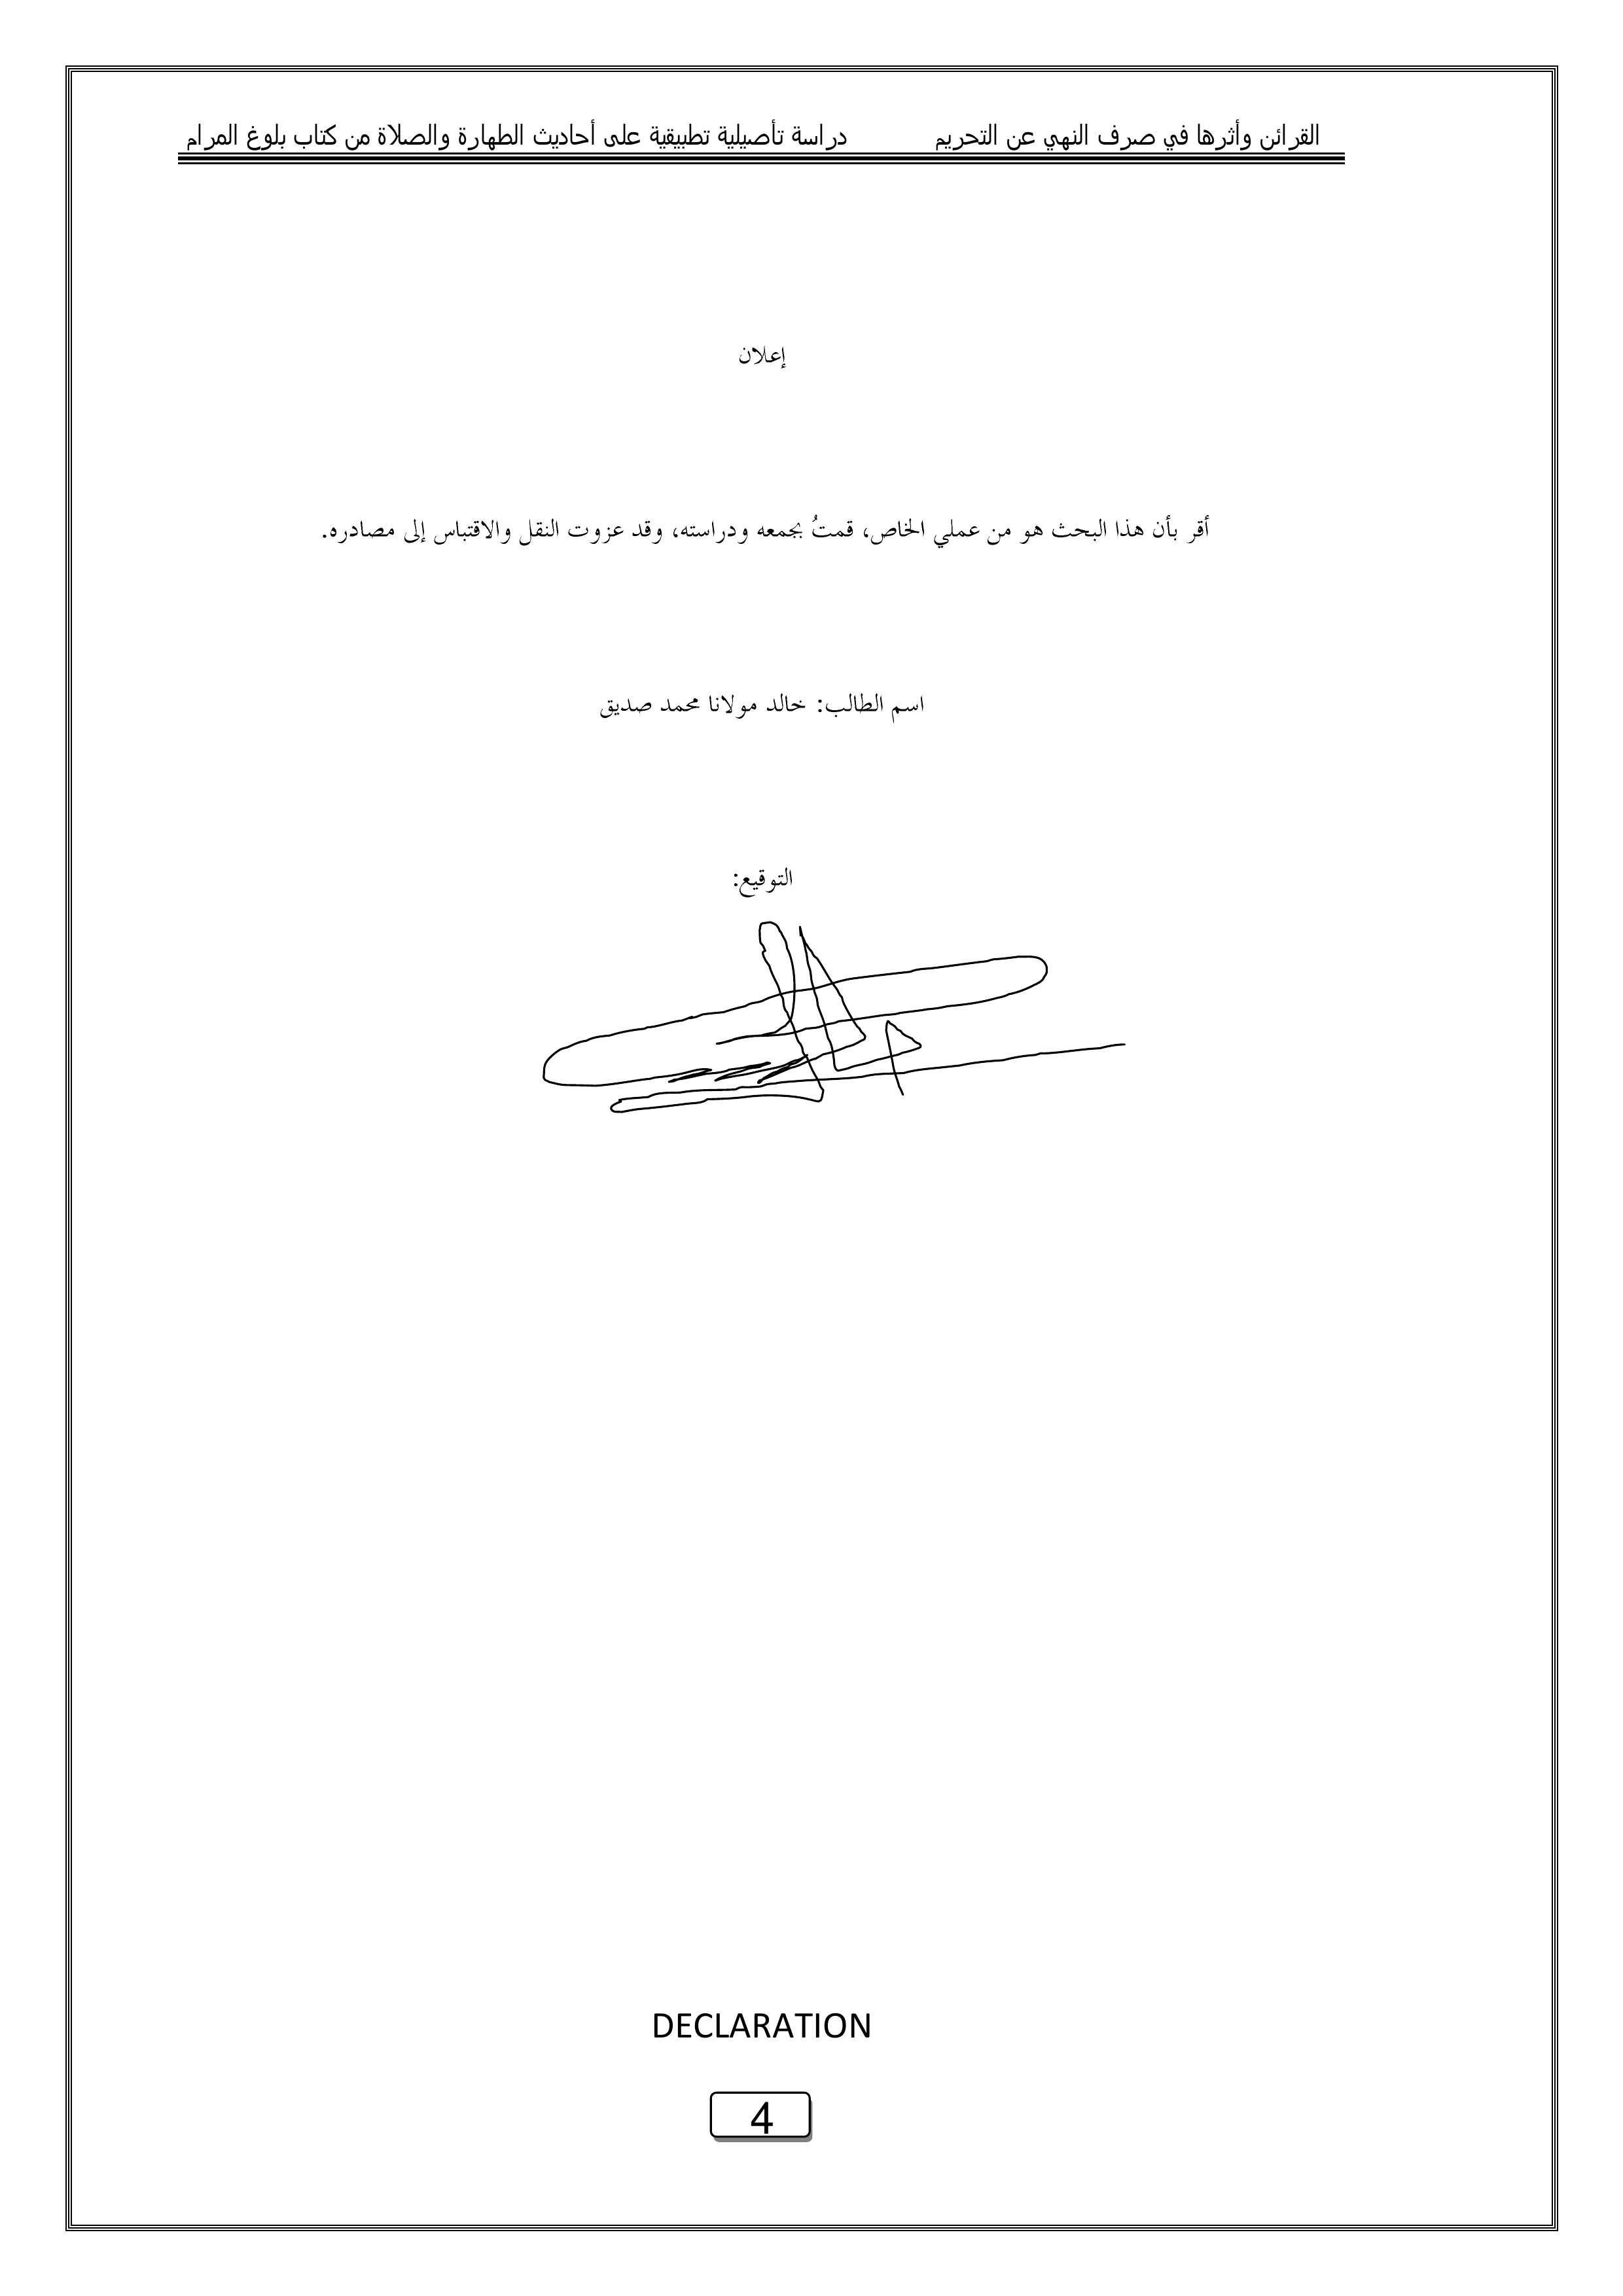 القرائن وأثرها في صرف النهي عن التحريم دراسة تأصيلية تطبيقية على أحاديث الطهارة والصلاة من كتاب بلوغ المرام
إعلان
أقر بأن هذا البحث هو من عملي الخاص، قمتُ بجمعه ودراسته، وقد عزوت النقل والاقتباس إلى مصادره.
اسم الطالب: خالد مولانا محمد صديق
التوقيع:
DECLARATION
4